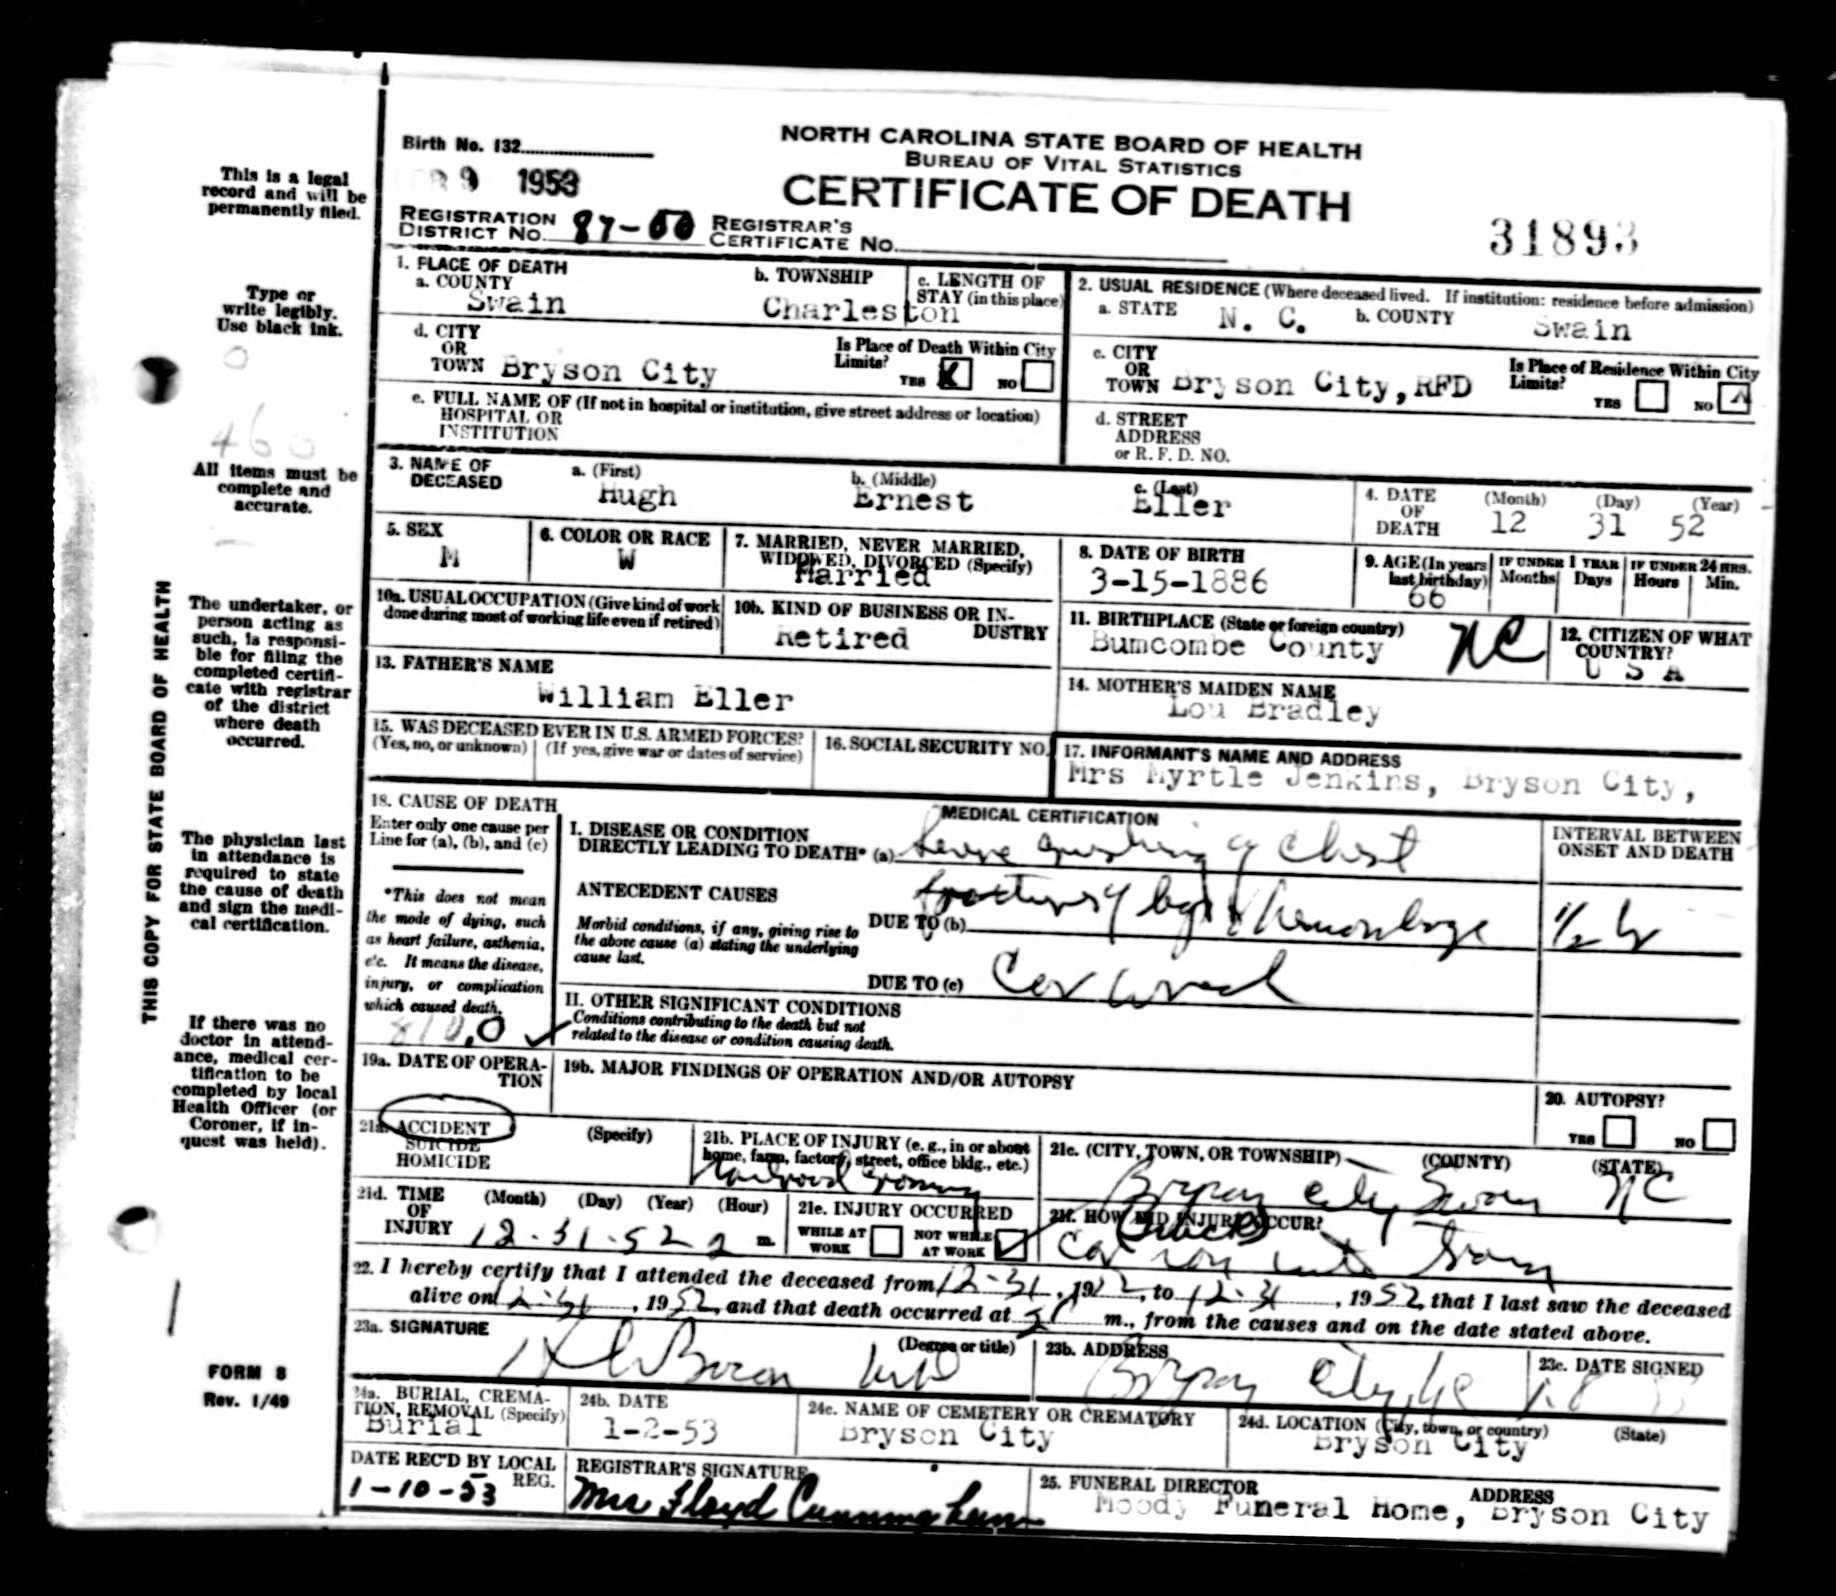 NORTH CAROLINA STATE BOARD OF HEALTH
BUREAU OF VITAL STATISTICS
CERTIFICATE OF DEATH
Birth No. 132
9 1953
31893
REGISTRATION DISTRICT No. 87-00 REGISTRAR'S CERTIFICATE No.
This is a legal record and will be permanently filed.
Type or write legibly. Use black ink.
460
All items must be complete and accurate.
The undertaker, or person acting as such, is responsible for filing the completed certificate with registrar of the district where death occurred.
The physician last in attendance is required to state the cause of death and sign the medical certification.
If there was no doctor in attendance, medical certification to be completed by local Health Officer (or Coroner, if inquest was held).
FORM 8
Rev. 1/49
THIS COPY FOR STATE BOARD OF HEALTH
1. PLACE OF DEATH
a. COUNTY Swain
b. TOWNSHIP Charleston
c. LENGTH OF STAY (in this place)
2. USUAL RESIDENCE (Where deceased lived. If institution: residence before admission)
a. STATE N. C. b. COUNTY Swain
d. CITY OR TOWN Bryson City
Is Place of Death Within City Limits? YES X NO
c. CITY OR TOWN Bryson City, RFD
Is Place of Residence Within City Limits? YES NO X
e. FULL NAME OF (If not in hospital or institution, give street address or location) HOSPITAL OR INSTITUTION
d. STREET ADDRESS or R. F. D. NO.
3. NAME OF DECEASED
a. (First) Hugh
b. (Middle) Ernest
c. (Last) Eller
4. DATE OF DEATH (Month) (Day) (Year) 12 31 52
5. SEX M
6. COLOR OR RACE W
7. MARRIED, NEVER MARRIED, WIDOWED, DIVORCED (Specify) Married
8. DATE OF BIRTH 3-15-1886
9. AGE (In years last birthday) 66
IF UNDER 1 YEAR Months Days
IF UNDER 24 HRS. Hours Min.
10a. USUAL OCCUPATION (Give kind of work done during most of working life even if retired)
10b. KIND OF BUSINESS OR INDUSTRY Retired
11. BIRTHPLACE (State or foreign country) Bumcombe County NC
12. CITIZEN OF WHAT COUNTRY? U S A
13. FATHER'S NAME William Eller
14. MOTHER'S MAIDEN NAME Lou Bradley
15. WAS DECEASED EVER IN U.S. ARMED FORCES?
(Yes, no, or unknown) (If yes, give war or dates of service)
16. SOCIAL SECURITY NO.
17. INFORMANT'S NAME AND ADDRESS
Mrs Myrtle Jenkins, Bryson City,
18. CAUSE OF DEATH
Enter only one cause per Line for (a), (b), and (c)
*This does not mean the mode of dying, such as heart failure, asthenia, etc. It means the disease, injury, or complication which caused death.
810.0 ✓
MEDICAL CERTIFICATION
INTERVAL BETWEEN ONSET AND DEATH
I. DISEASE OR CONDITION DIRECTLY LEADING TO DEATH* (a) Severe crushing of chest
ANTECEDENT CAUSES
Morbid conditions, if any, giving rise to the above cause (a) stating the underlying cause last.
DUE TO (b) fracture of legs & hemorrhage 1/2 hr
DUE TO (c) Car wreck
II. OTHER SIGNIFICANT CONDITIONS
Conditions contributing to the death but not related to the disease or condition causing death.
19a. DATE OF OPERATION
19b. MAJOR FINDINGS OF OPERATION AND/OR AUTOPSY
20. AUTOPSY? YES NO
21a. ACCIDENT SUICIDE HOMICIDE (Specify)
21b. PLACE OF INJURY (e. g., in or about home, farm, factory, street, office bldg., etc.)
Railroad crossing
21c. (CITY, TOWN, OR TOWNSHIP) (COUNTY) (STATE)
Bryson City Swain NC
21d. TIME OF INJURY (Month) (Day) (Year) (Hour) 12-31-52 2 m.
21e. INJURY OCCURRED WHILE AT WORK NOT WHILE AT WORK ✓
21f. HOW DID INJURY OCCUR?
Car ran into train
22. I hereby certify that I attended the deceased from 12-31, 1952, to 12-31, 1952, that I last saw the deceased
alive on 12-31, 1952, and that death occurred at m., from the causes and on the date stated above.
23a. SIGNATURE (Degree or title) MD
23b. ADDRESS Bryson City, NC
23c. DATE SIGNED
24a. BURIAL, CREMATION, REMOVAL (Specify) Burial
24b. DATE 1-2-53
24c. NAME OF CEMETERY OR CREMATORY Bryson City
24d. LOCATION (City, town, or country) (State) Bryson City
DATE REC'D BY LOCAL REG. 1-10-53
REGISTRAR'S SIGNATURE Mrs Floyd Cunningham
25. FUNERAL DIRECTOR ADDRESS
Moody Funeral Home, Bryson City